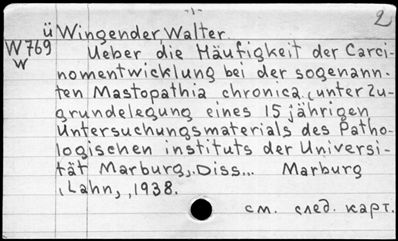 -1-
2
ü Wingender Walter.
W769 Ueber die Häufigkeit der Carci-
w nomentwicklung bei der sogenann-
ten Mastopathia chronica, unter Zu-
grundelegung eines 15 jährigen
Untersuchungsmaterials des Patho-
logischen instituts der Universi-
tät Marburg,. Diss... Marburg
,Lahn,,1938.
см. след. карт.